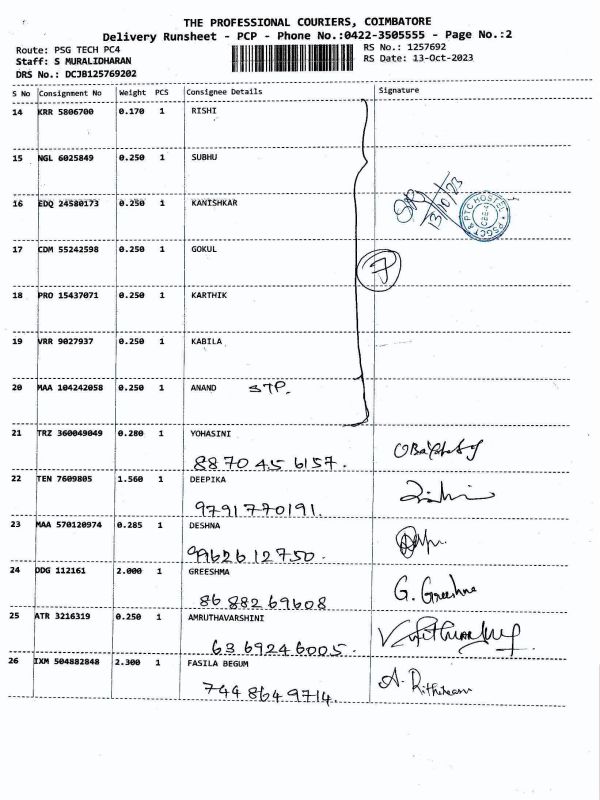 THE PROFESSIONAL COURIERS, COIMBATORE
Delivery Runsheet - PCP - Phone No.:0422-3505555 - Page No.:2
Route: PSG TECH PC4
Staff: S MURALIDHARAN
DRS No.: DCJB125769202
RS No.: 1257692
RS Date: 13-Oct-2023
S No Consignment No Weight PCS Consignee Details Signature
14 KRR 5806700 0.170 1 RISHI
15 NGL 6025849 0.250 1 SUBHU
16 EDQ 24580173 0.250 1 KANISHKAR
13/10/23
17 CDM 55242598 0.250 1 GOKUL
7
18 PRO 15437071 0.250 1 KARTHIK
19 VRR 9027937 0.250 1 KABILA
20 MAA 104242058 0.250 1 ANAND STP.
21 TRZ 360049049 0.280 1 YOHASINI
8870456157.
22 TEN 7609805 1.560 1 DEEPIKA
9791770191.
23 MAA 570120974 0.285 1 DESHNA
9962612750.
24 DDG 112161 2.000 1 GREESHMA
G. Greeshma
8688269608
25 ATR 3216319 0.250 1 AMRUTHAVARSHINI
6369246005.
26 IXM 504882848 2.300 1 FASILA BEGUM
7448649714.